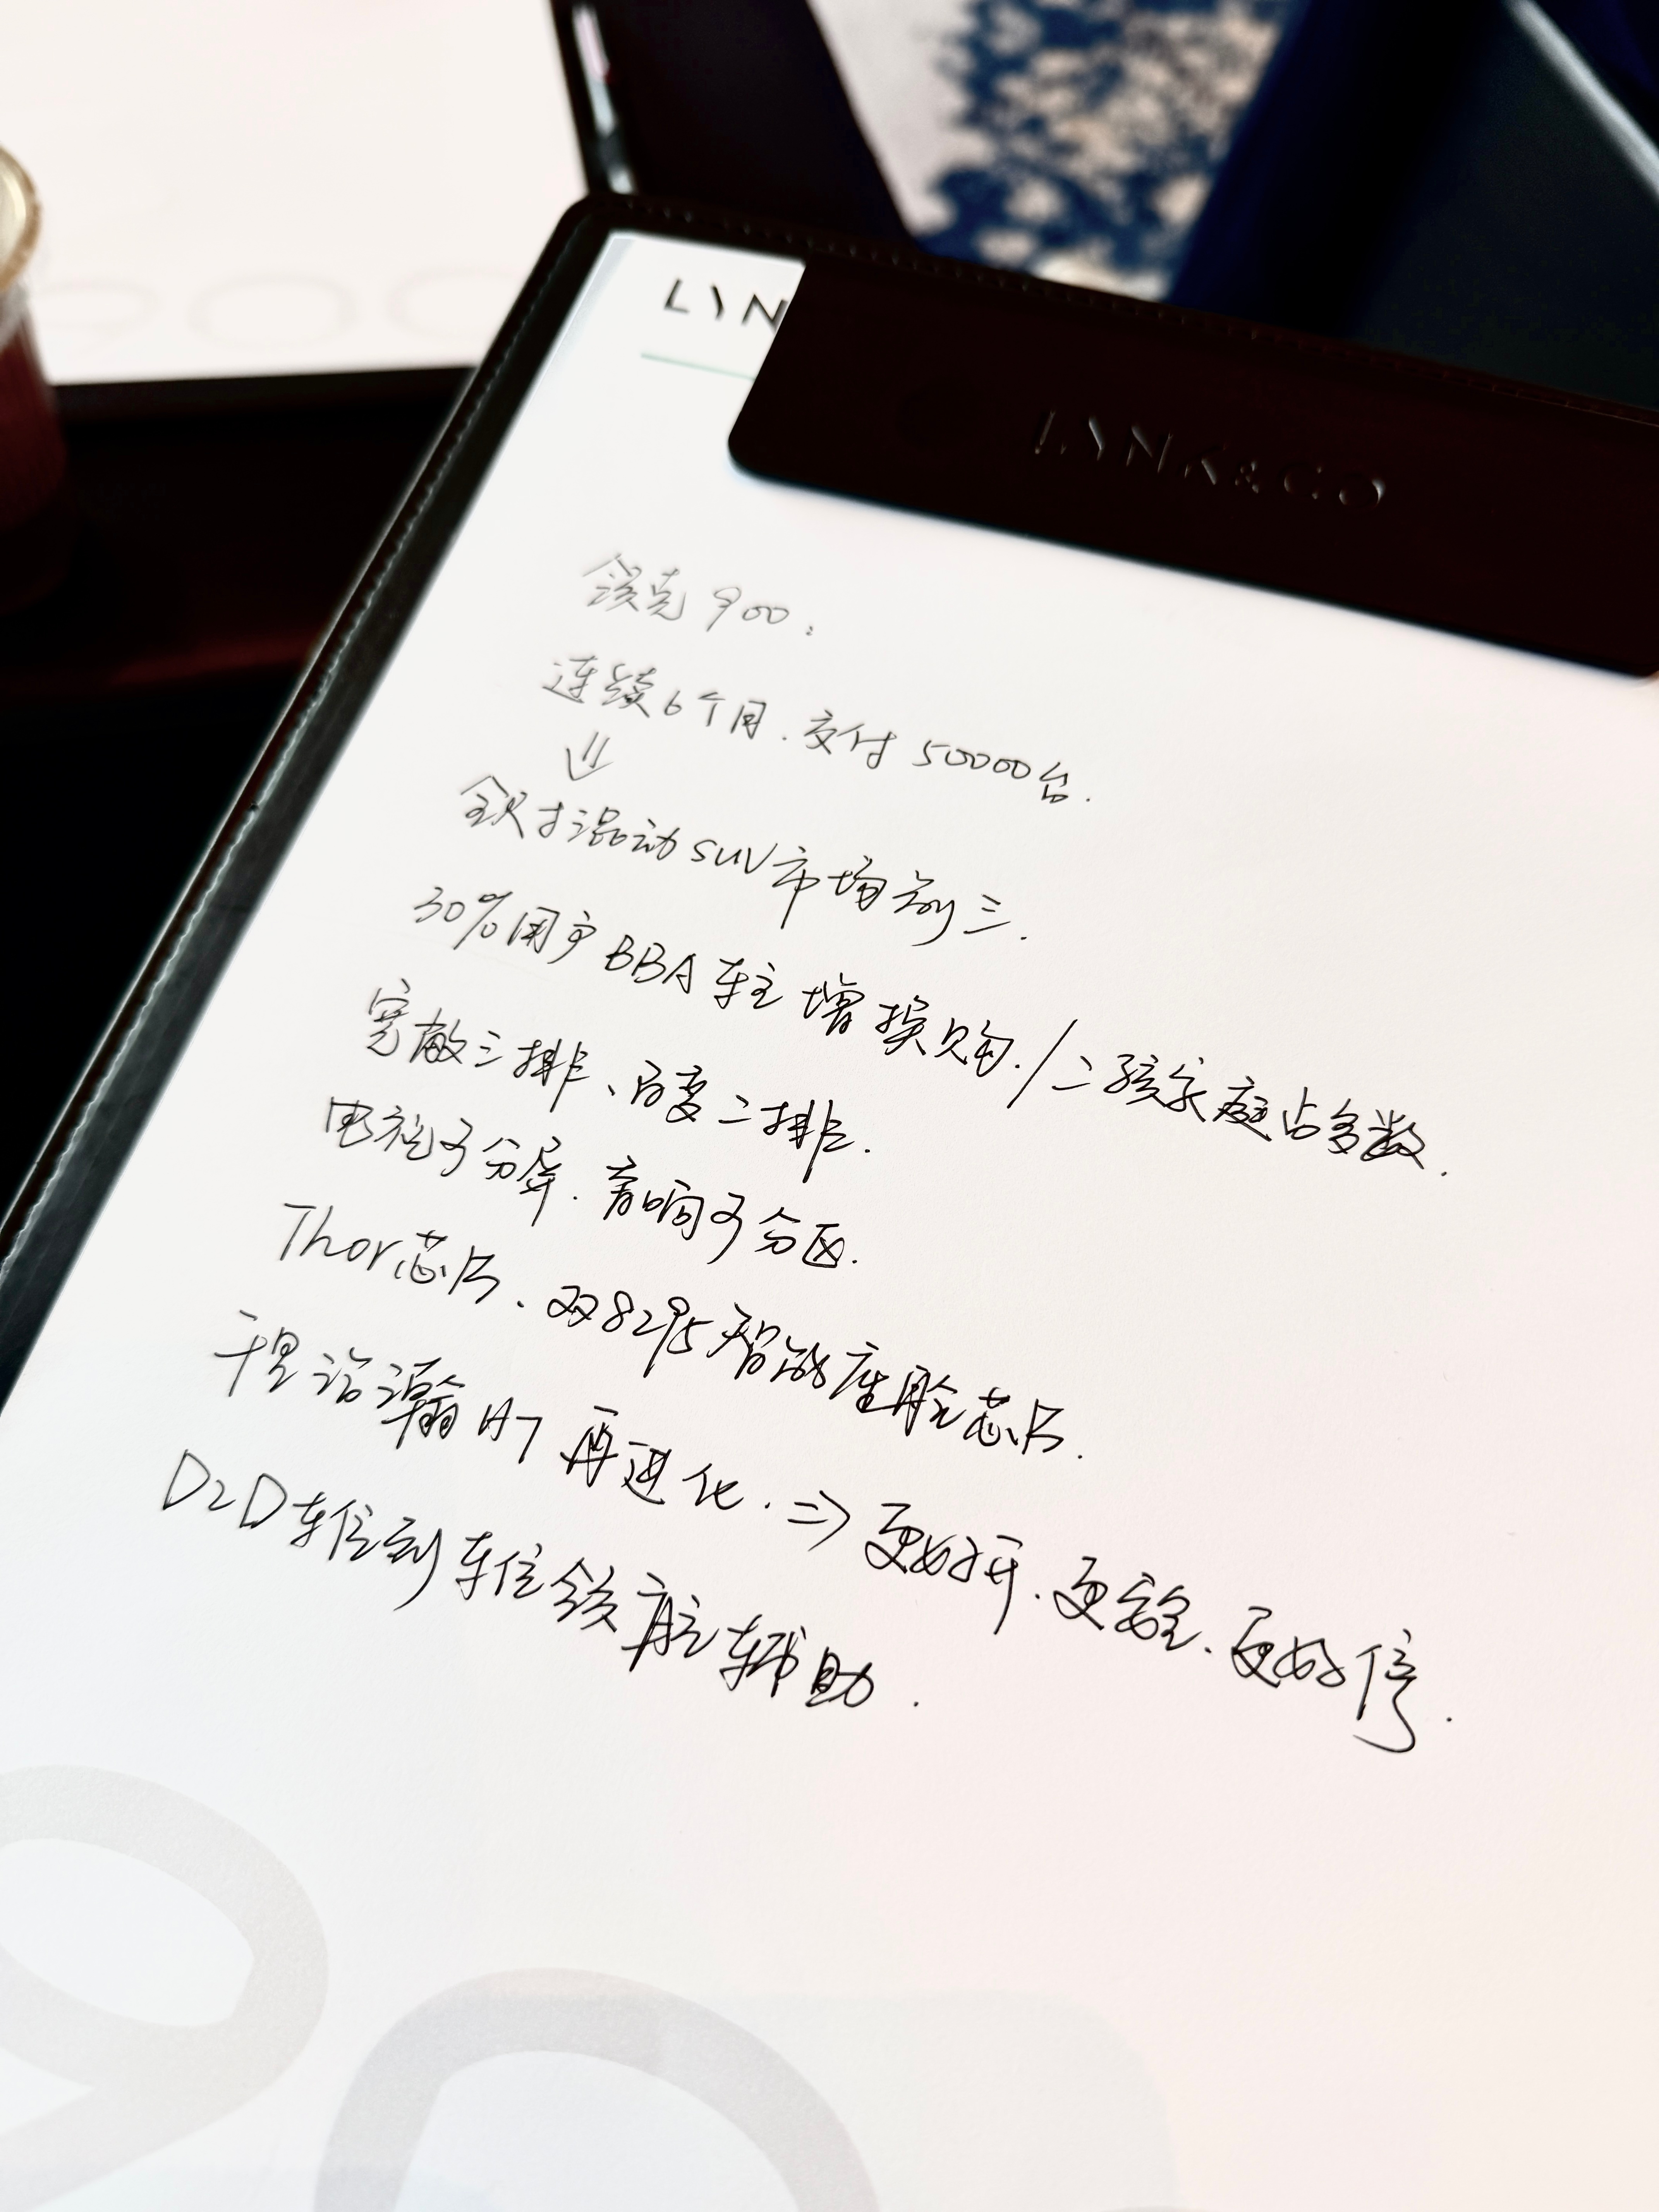 LYN
LYNK&CO
领克900:
连续6个月.交付50000台.
⇓
全尺寸混动SUV市场前三.
30%用户BBA车主增换购./二孩家庭占多数.
宽敞三排、百变二排.
电视可分屏.音响可分区.
Thor芯片、双8295智能座舱芯片.
千里浩瀚H7再进化.⇒更好开.更安全.更好停.
D2D车位到车位领航辅助.